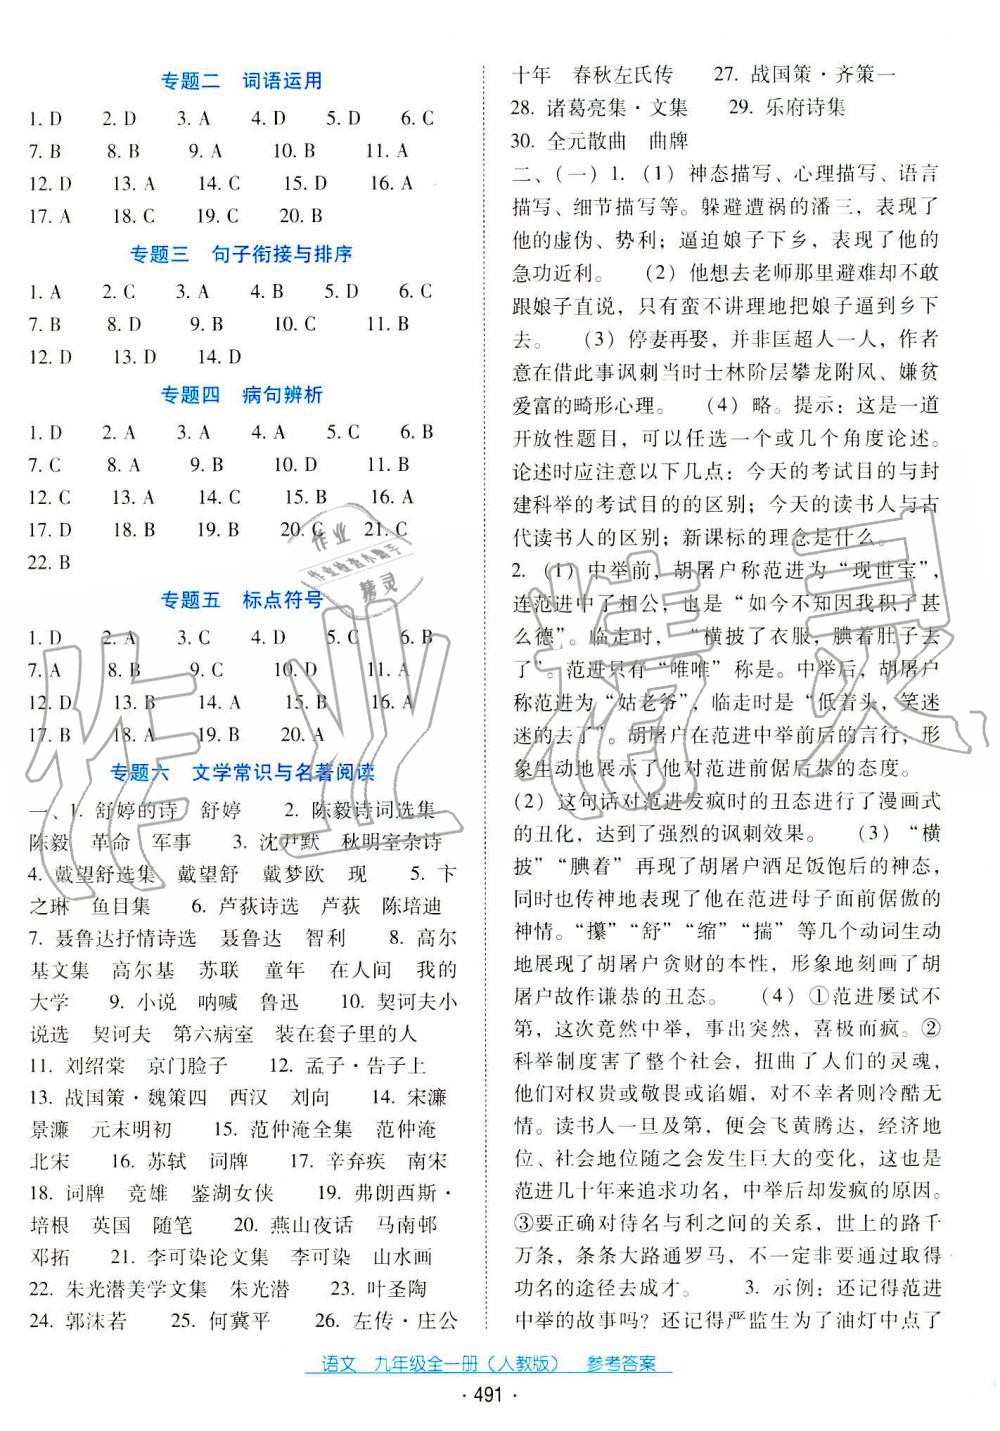 专题二　词语运用
1. D　2. D　3. A　4. D　5. D　6. C
7. B　8. B　9. A　10. B　11. A
12. D　13. A　14. C　15. D　16. A
17. A　18. C　19. C　20. B
专题三　句子衔接与排序
1. A　2. C　3. A　4. B　5. D　6. C
7. B　8. D　9. B　10. C　11. B
12. D　13. D　14. D
专题四　病句辨析
1. D　2. A　3. A　4. A　5. C　6. B
7. C　8. A　9. B　10. D　11. B
12. C　13. A　14. C　15. B　16. A
17. D　18. B　19. B　20. C　21. C
22. B
专题五　标点符号
1. D　2. A　3. C　4. D　5. D　6. B
7. A　8. B　9. C　10. D　11. A
12. D　13. B　14. A　15. B　16. A
17. B　18. A　19. B　20. A
专题六　文学常识与名著阅读
一、1. 舒婷的诗　舒婷　2. 陈毅诗词选集
陈毅　革命　军事　3. 沈尹默　秋明室杂诗
4. 戴望舒选集　戴望舒　戴梦欧　现　5. 卞
之琳　鱼目集　6. 芦荻诗选　芦荻　陈培迪
7. 聂鲁达抒情诗选　聂鲁达　智利　8. 高尔
基文集　高尔基　苏联　童年　在人间　我的
大学　9. 小说　呐喊　鲁迅　10. 契诃夫小
说选　契诃夫　第六病室　装在套子里的人
11. 刘绍棠　京门脸子　12. 孟子·告子上
13. 战国策·魏策四　西汉　刘向　14. 宋濂
景濂　元末明初　15. 范仲淹全集　范仲淹
北宋　16. 苏轼　词牌　17. 辛弃疾　南宋
18. 词牌　竞雄　鉴湖女侠　19. 弗朗西斯·
培根　英国　随笔　20. 燕山夜话　马南邨
邓拓　21. 李可染论文集　李可染　山水画
22. 朱光潜美学文集　朱光潜　23. 叶圣陶
24. 郭沫若　25. 何冀平　26. 左传·庄公
十年　春秋左氏传　27. 战国策·齐策一
28. 诸葛亮集·文集　29. 乐府诗集
30. 全元散曲　曲牌
二、（一）1.（1）神态描写、心理描写、语言
描写、细节描写等。躲避遭祸的潘三，表现了
他的虚伪、势利；逼迫娘子下乡，表现了他的
急功近利。（2）他想去老师那里避难却不敢
跟娘子直说，只有蛮不讲理地把娘子逼到乡下
去。（3）停妻再娶，并非匡超人一人，作者
意在借此事讽刺当时士林阶层攀龙附凤、嫌贫
爱富的畸形心理。（4）略。提示：这是一道
开放性题目，可以任选一个或几个角度论述。
论述时应注意以下几点：今天的考试目的与封
建科举的考试目的的区别；今天的读书人与古
代读书人的区别；新课标的理念是什么。
2.（1）中举前，胡屠户称范进为“现世宝”，
连范进中了相公，也是“如今不知因我积了甚
么德”。临走时，“横披了衣服，腆着肚子去
了”。范进只有“唯唯”称是。中举后，胡屠户
称范进为“姑老爷”，临走时是“低着头，笑迷
迷的去了”。胡屠户在范进中举前后的言行，形
象生动地展示了他对范进前倨后恭的态度。
（2）这句话对范进发疯时的丑态进行了漫画式
的丑化，达到了强烈的讽刺效果。（3）“横
披”“腆着”再现了胡屠户酒足饭饱后的神态，
同时也传神地表现了他在范进母子面前倨傲的
神情。“攥”“舒”“缩”“揣”等几个动词生动
地展现了胡屠户贪财的本性，形象地刻画了胡
屠户故作谦恭的丑态。（4）①范进屡试不
第，这次竟然中举，事出突然，喜极而疯。②
科举制度害了整个社会，扭曲了人们的灵魂，
他们对权贵或敬畏或谄媚，对不幸者则冷酷无
情。读书人一旦及第，便会飞黄腾达，经济地
位、社会地位随之会发生巨大的变化，这也是
范进几十年来追求功名，中举后却发疯的原因。
③要正确对待名与利之间的关系，世上的路千
万条，条条大路通罗马，不一定非要通过取得
功名的途径去成才。3. 示例：还记得范进
中举的故事吗？还记得严监生为了油灯中点了
语文　九年级全一册（人教版）　参考答案
· 491 ·
作业
作业检查小助手
精灵
作业精灵